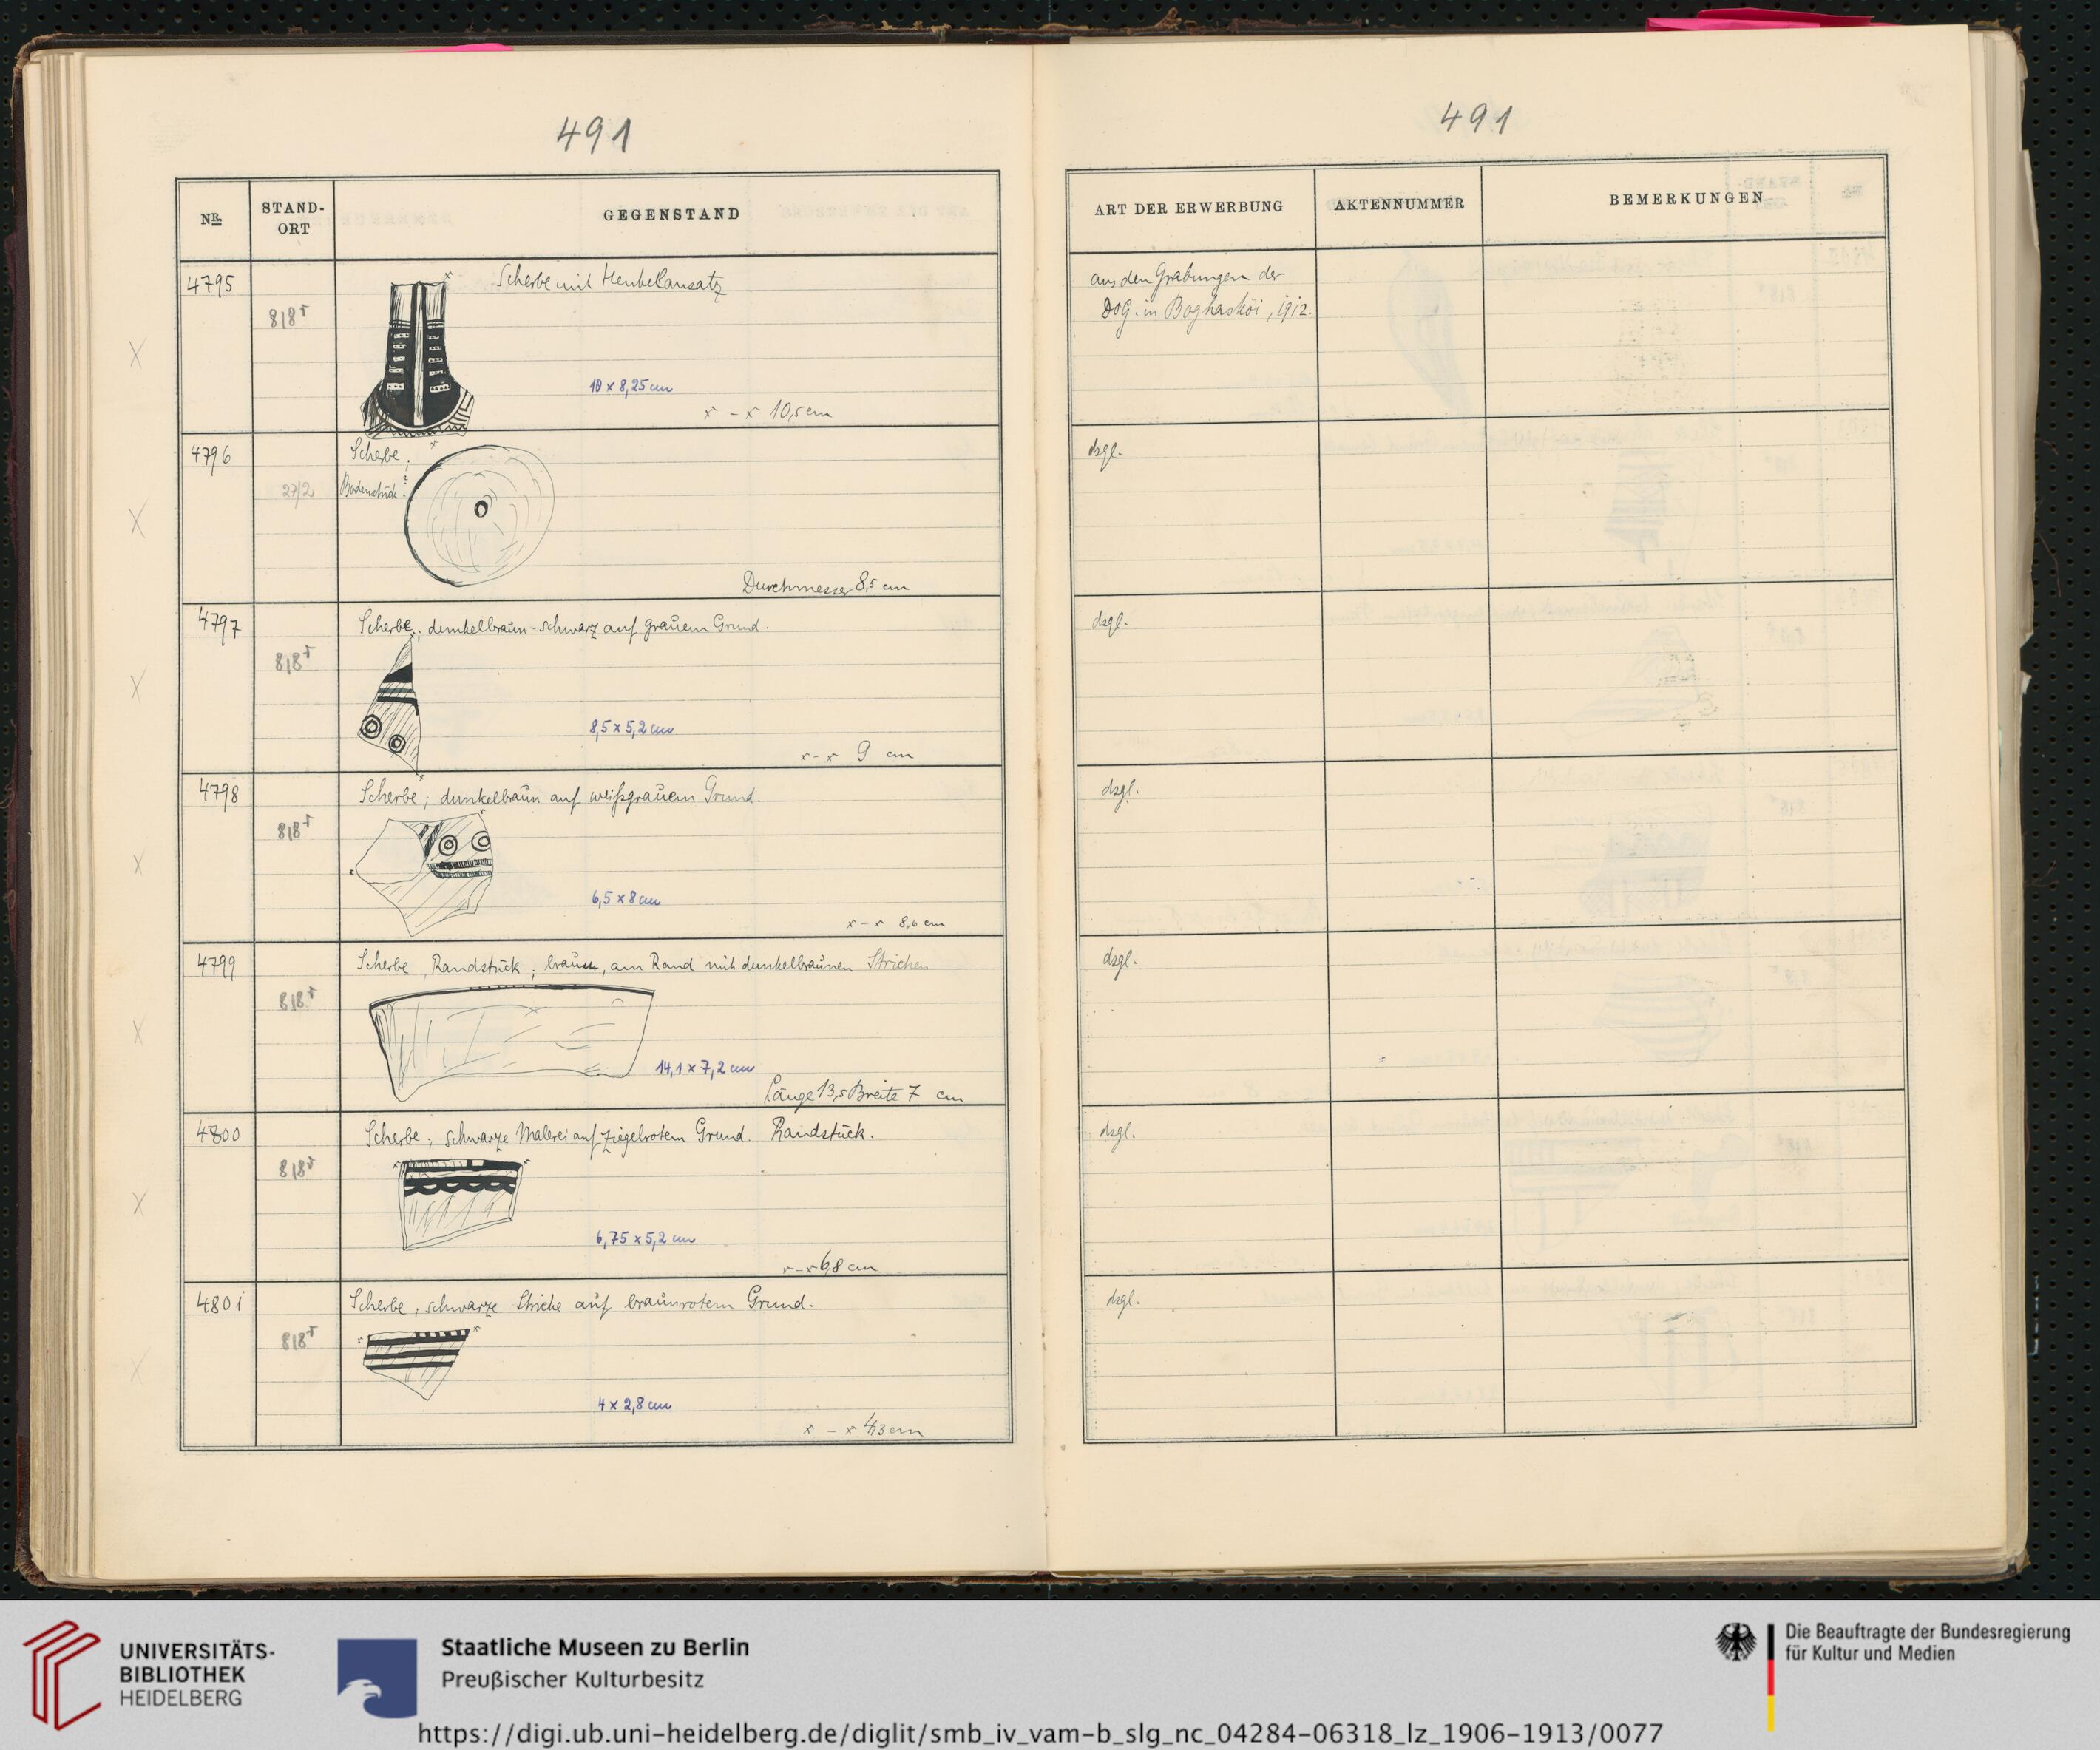 491
NR.
STAND-
ORT
GEGENSTAND
4795
8/8
Scherbe mit Henkelansatz
10 x 8,25 cm
x - x 10,5 cm
4796
27/2
Scherbe;
Bodenstück?
Durchmesser 8,5 cm
4797
8/8
Scherbe; dunkelbraun-schwarz auf grauem Grund.
8,5 x 5,2 cm
x - x 9 cm
4798
8/8
Scherbe; dunkelbraun auf weißgrauem Grund.
6,5 x 8 cm
x - x 8,6 cm
4799
8/8
Scherbe, Randstück; braun, am Rand mit dunkelbraunen Strichen
14,1 x 7,2 cm
Länge 13,5 Breite 7 cm
4800
8/8
Scherbe; schwarze Malerei auf ziegelrotem Grund. Randstück.
6,75 x 5,2 cm
x - x 6,8 cm
4801
8/8
Scherbe; schwarze Striche auf braunrotem Grund.
4 x 2,8 cm
x - x 4,3 cm
491
ART DER ERWERBUNG
AKTENNUMMER
BEMERKUNGEN
aus den Grabungen der
DOG. in Boghasköi, 1912.
dsgl.
dsgl.
dsgl.
dsgl.
dsgl.
dsgl.
UNIVERSITÄTS-
BIBLIOTHEK
HEIDELBERG
Staatliche Museen zu Berlin
Preußischer Kulturbesitz
Die Beauftragte der Bundesregierung
für Kultur und Medien
https://digi.ub.uni-heidelberg.de/diglit/smb_iv_vam-b_slg_nc_04284-06318_lz_1906-1913/0077